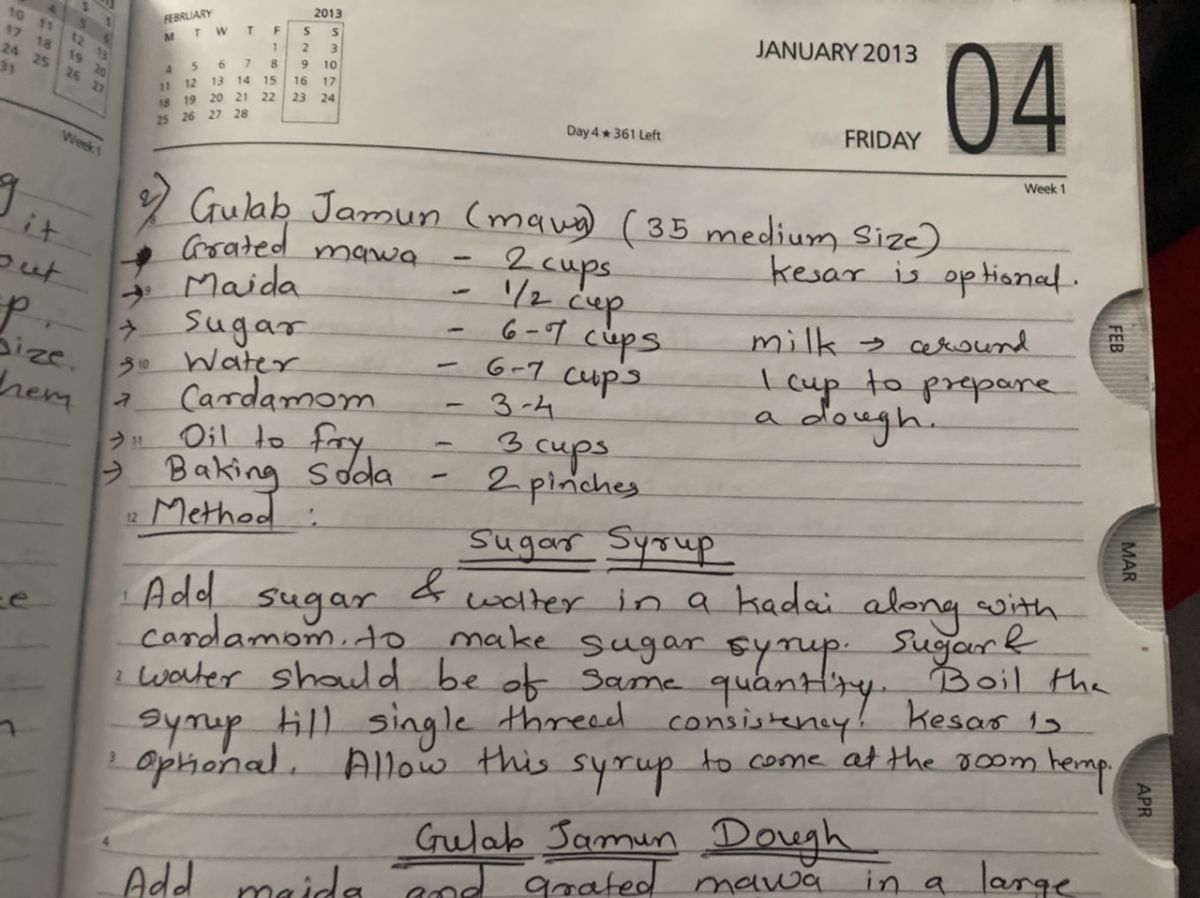 FEBRUARY 2013
M T W T F S S
1 2 3
4 5 6 7 8 9 10
11 12 13 14 15 16 17
18 19 20 21 22 23 24
25 26 27 28
JANUARY 2013
04
Day 4 ★ 361 Left
FRIDAY
Week 1
Week 1
10 11 12 13
17 18 19 20
24 25 26 27
31
g
it
out
p.
size.
hem
2) Gulab Jamun (mawa) (35 medium size)
→ Grated mawa - 2 cups kesar is optional.
→ 9 Maida - 1/2 cup
→ Sugar - 6-7 cups milk → around
→ 10 Water - 6-7 cups 1 cup to prepare
→ Cardamom - 3-4 a dough.
→ 11 Oil to fry - 3 cups
→ Baking Soda - 2 pinches
12 Method :
Sugar Syrup
1 Add sugar & water in a kadai along with
cardamom. to make sugar syrup. Sugar &
2 water should be of same quantity. Boil the
syrup till single thread consistency. Kesar is
3 optional. Allow this syrup to come at the room temp.
4 Gulab Jamun Dough
Add maida and grated mawa in a large
FEB
MAR
APR